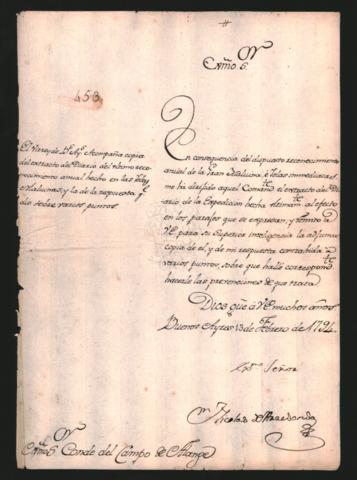 Exmo Sor
453
El Virrey de Bs Ays Acompaña copia
del extracto de Diario del ultimo reco-
nocimiento anual hecho en las Yslas
Maluinas, y la de la respuesta q
dio sobre varios puntos.
En consequencia del dispuesto reconocimiento
anual de la Gran Maluina, é Yslas immediatas
me há dirijido aquel Comandte el extracto del Dia-
rio de la Expedicion hecha al efecto
en los parajes que se expresan; y remito a
VE para su Superior inteligencia la adjunta
copia de el, y de mi respuesta contrahida á
varios puntos, sobre que halle correspond
hacerle las prevenciones de que trata.
Dios gue á VE muchos años
Buenos Ayres 13 de Febrero de 1794.
Exmo Señor
Nicolas de Arredondo
Exmo Sor Conde del Campo de Alange